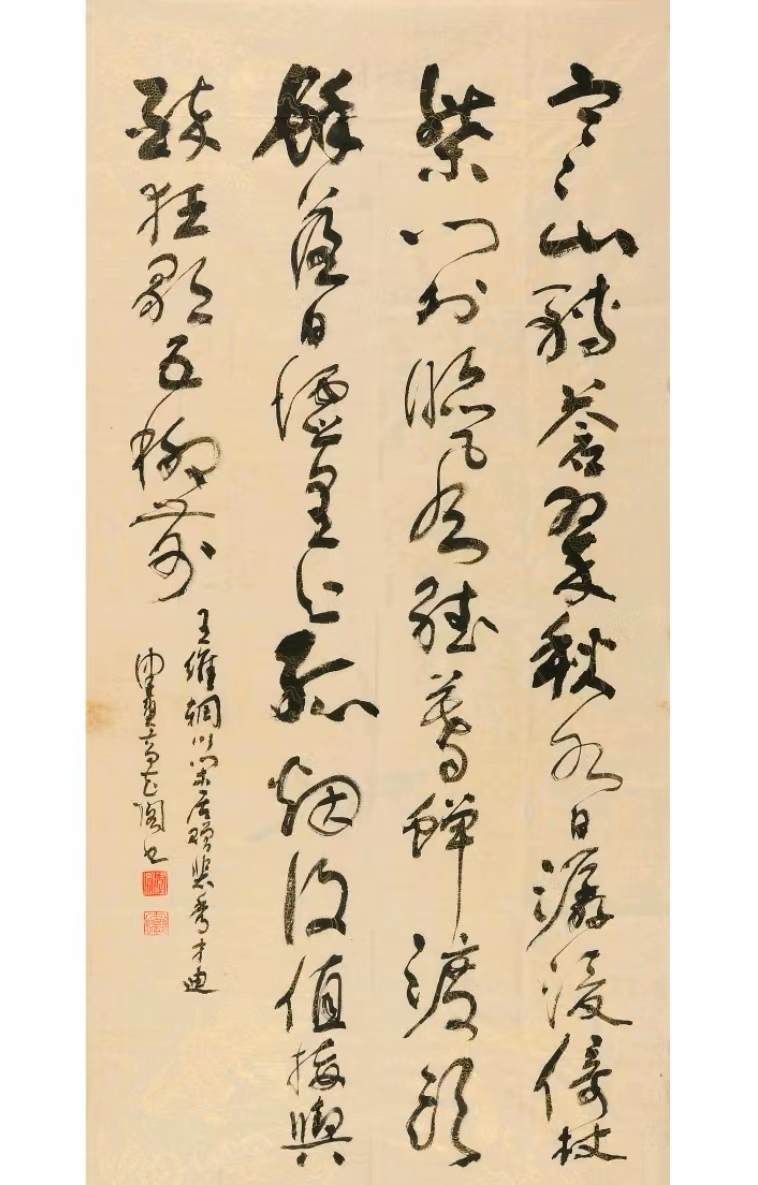 寒山轉蒼翠秋水日潺湲倚杖
柴門外臨風聽暮蟬渡頭
餘落日墟里上孤烟復值接輿
醉狂歌五柳前
王維輞川閑居贈裴秀才迪